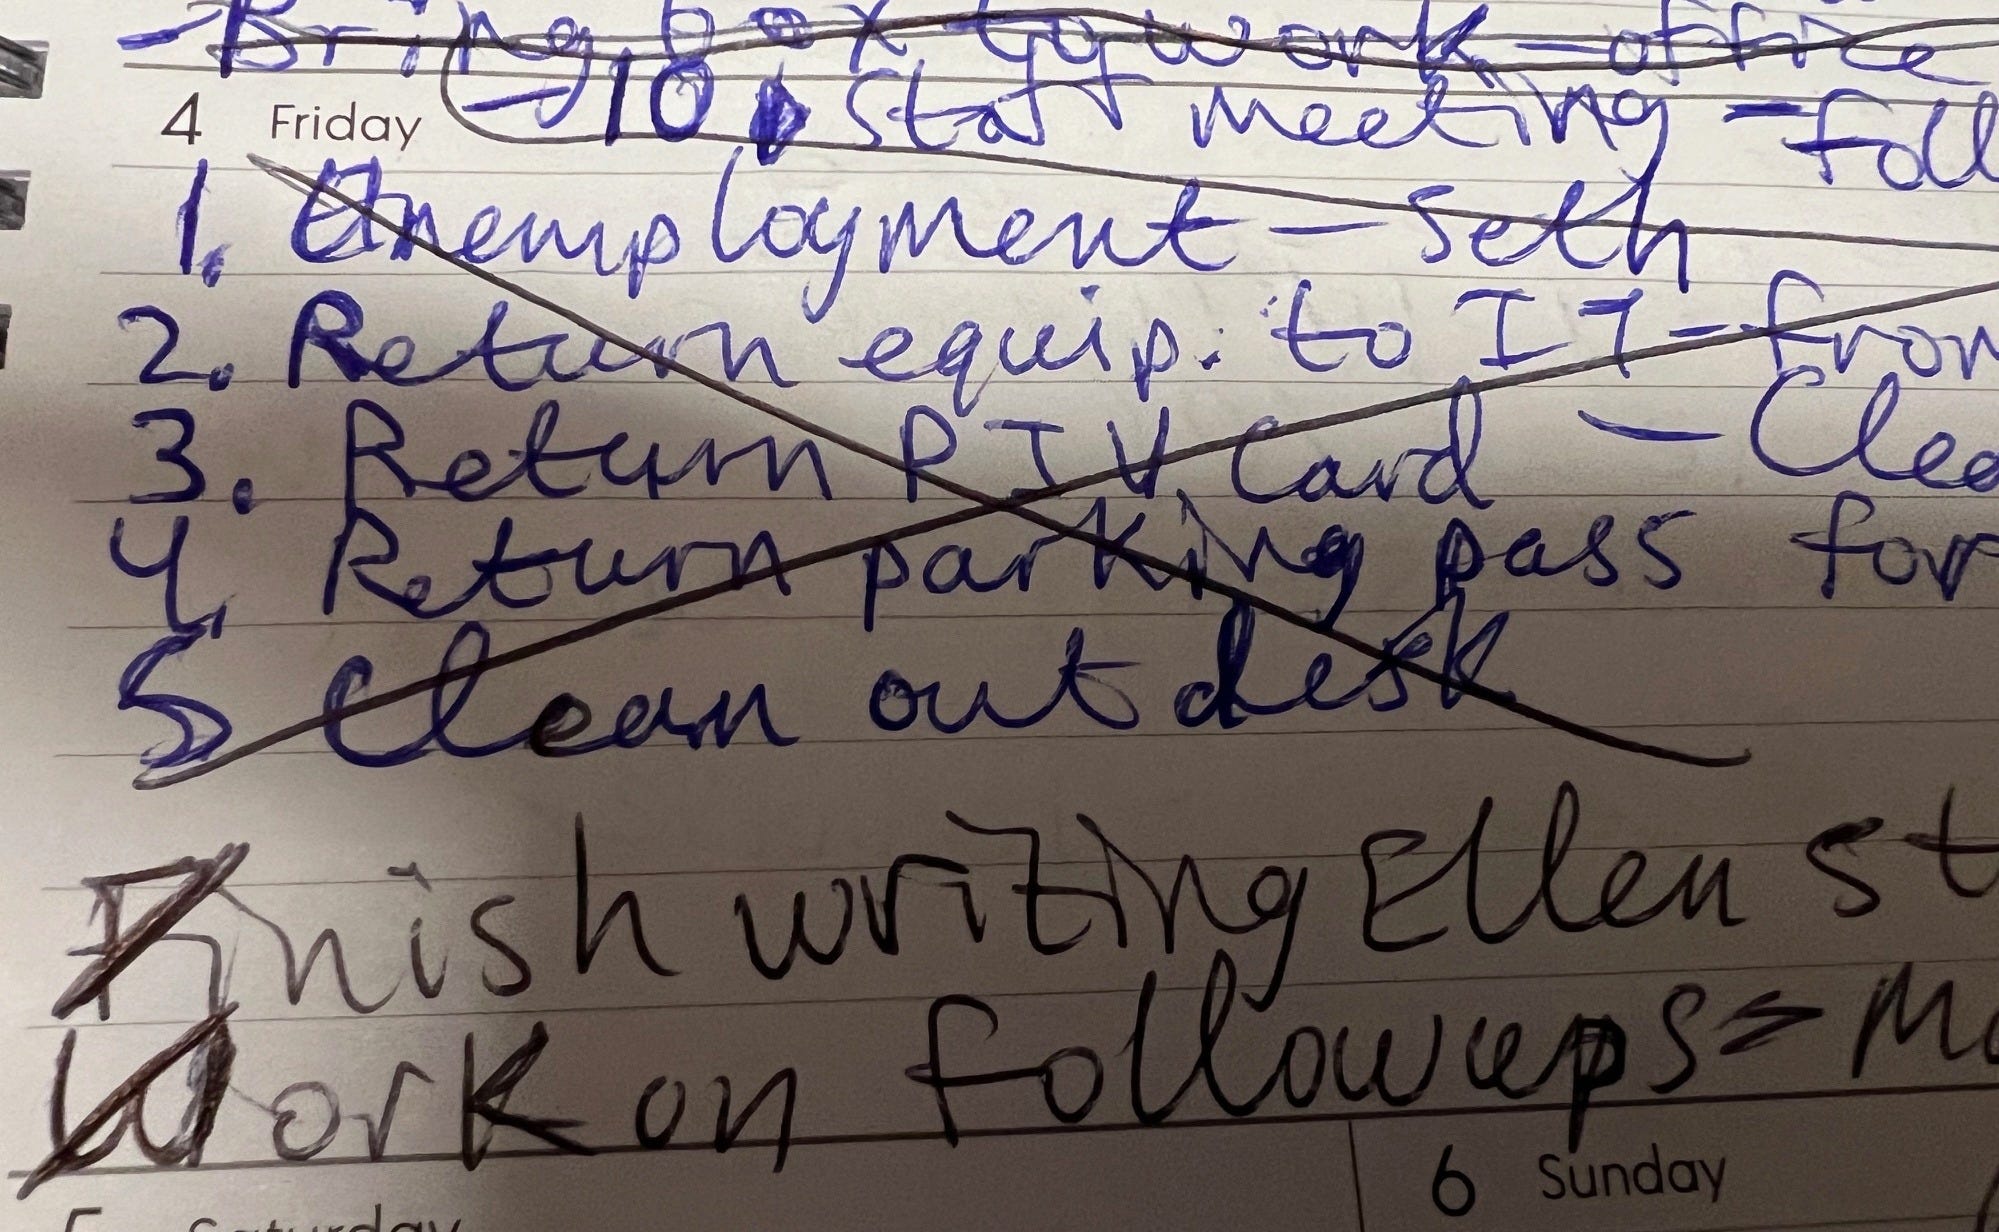 - Bring box to work - office
- 10 Staff meeting - Foll
4 Friday
1. Unemployment - Seth
2. Return equip. to IT - from
3. Return PIV Card - Clea
4. Return parking pass for
5 Clean out desk
Finish writing Ellen st
Work on followups = Mo
6 Sunday
5 Saturday